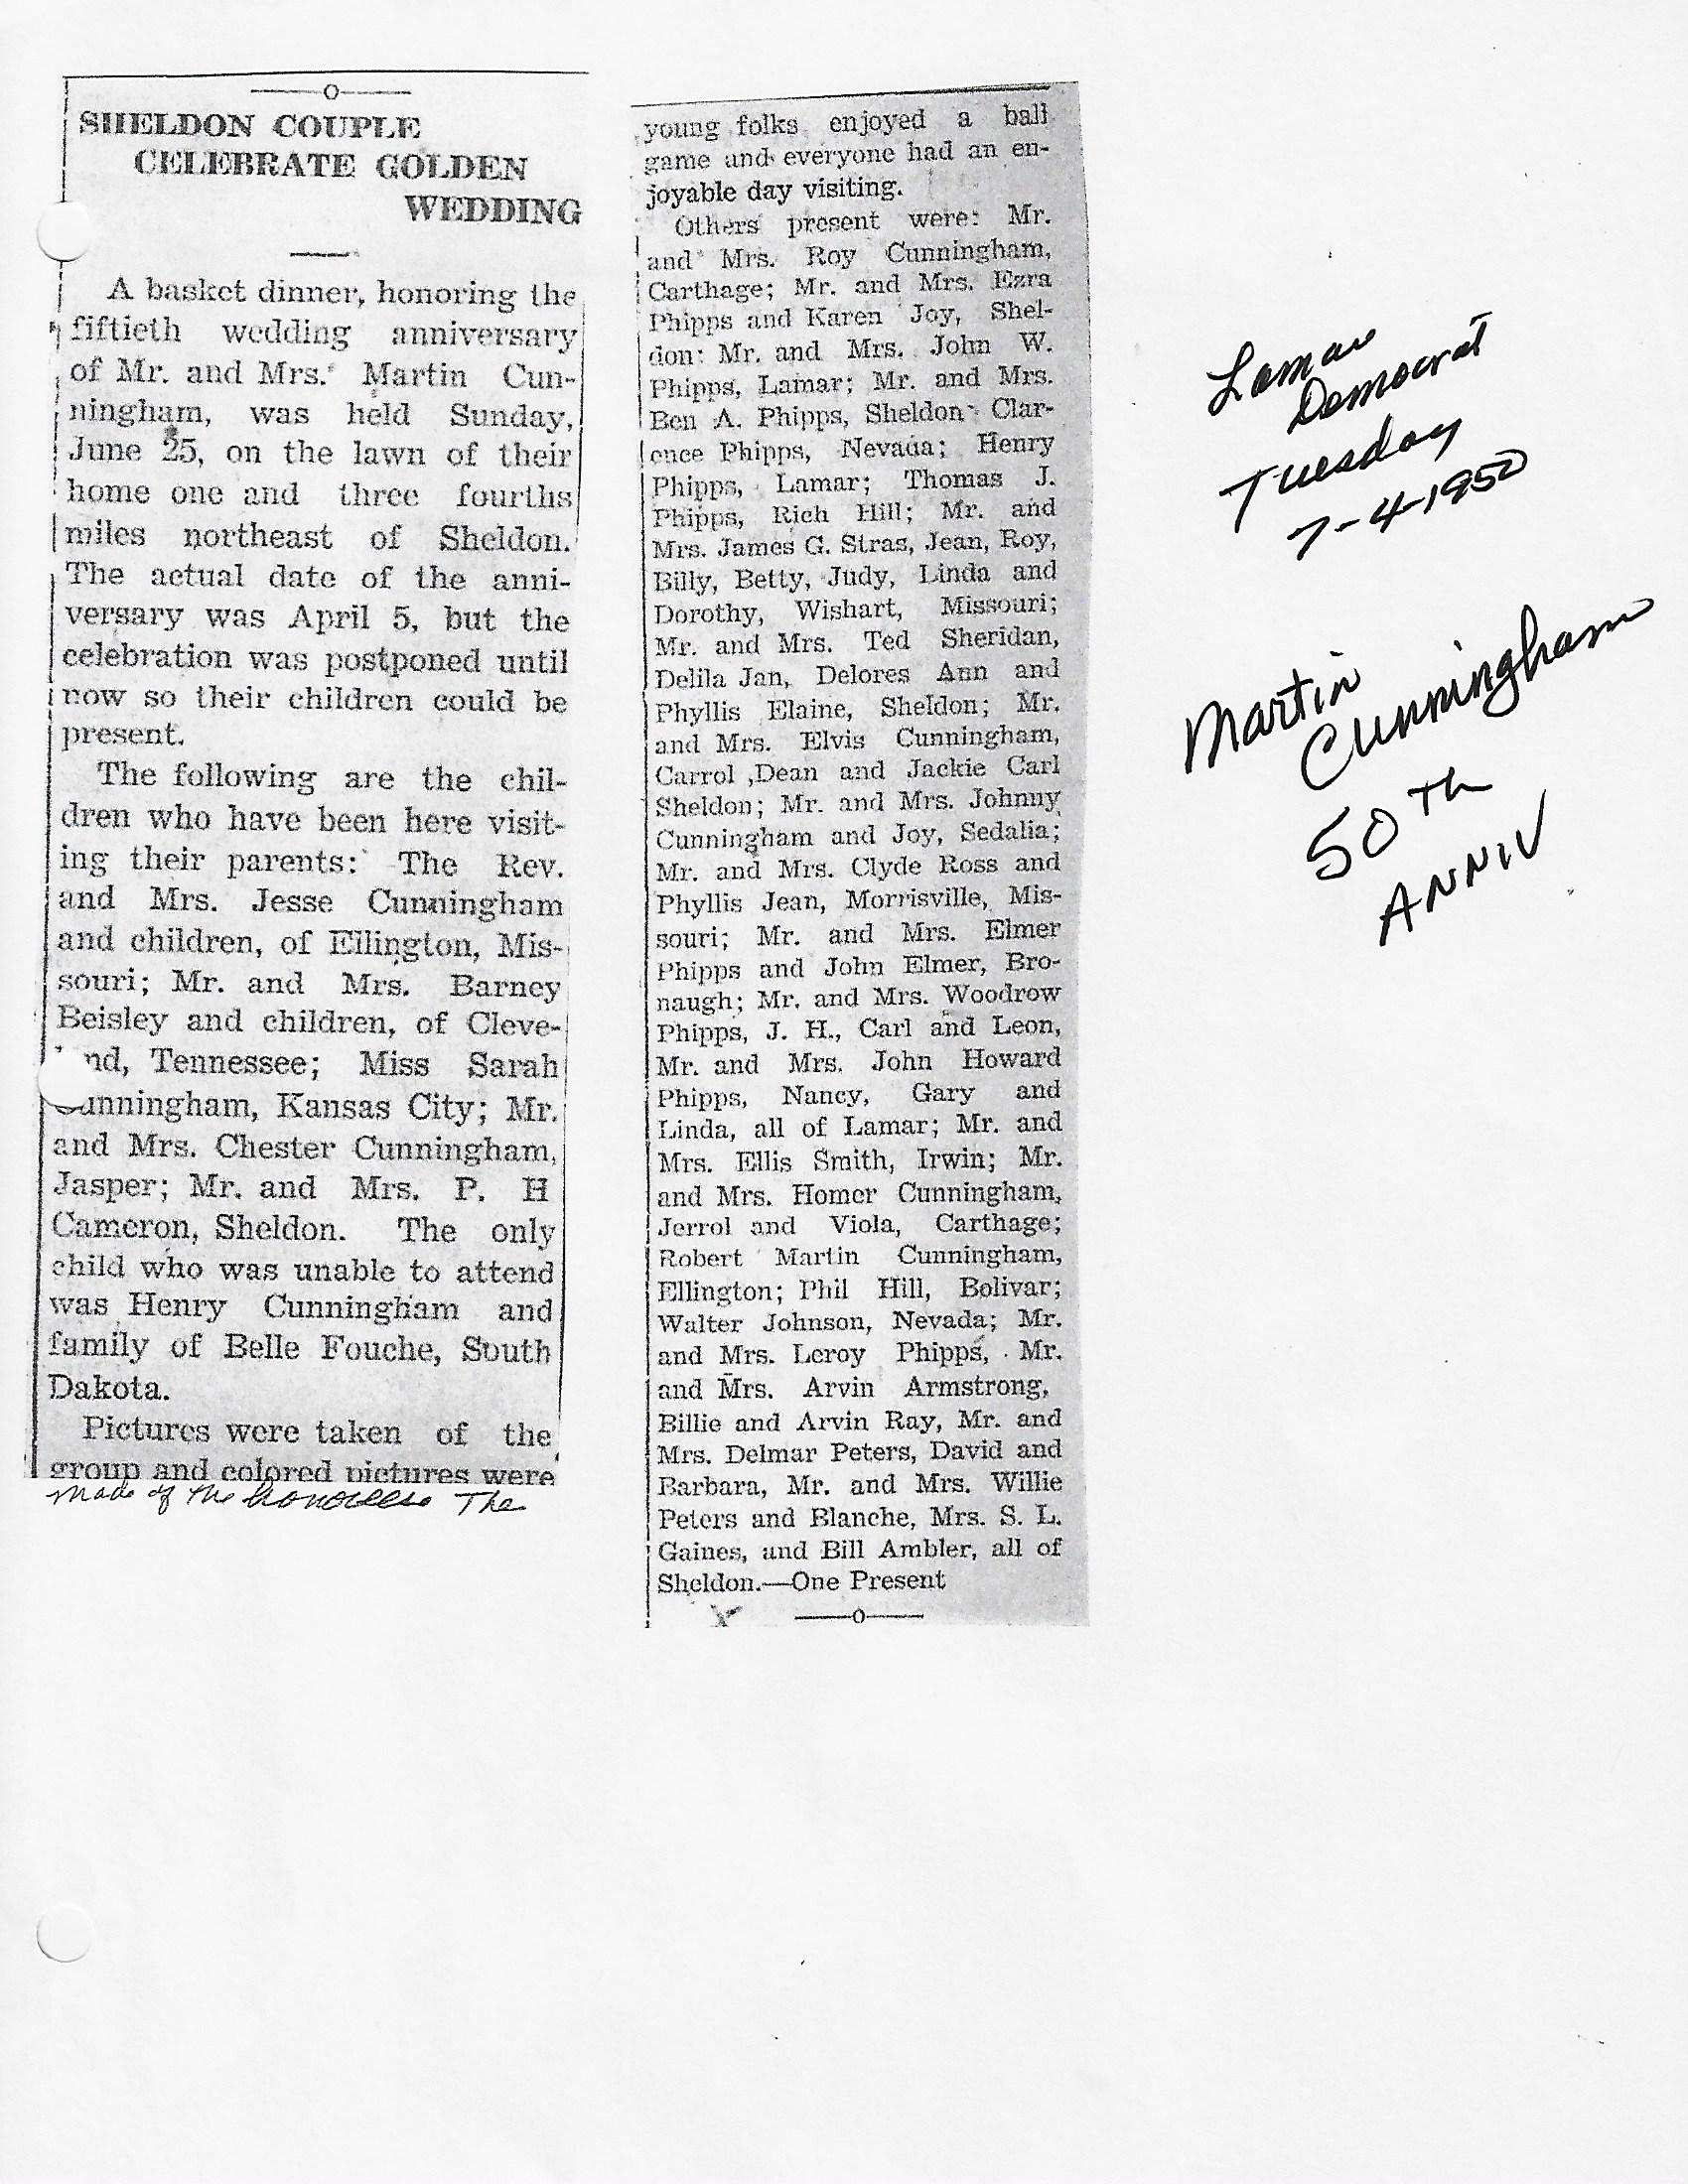 SHELDON COUPLE
CELEBRATE GOLDEN
WEDDING
A basket dinner, honoring the
fiftieth wedding anniversary
of Mr. and Mrs. Martin Cun-
ningham, was held Sunday,
June 25, on the lawn of their
home one and three fourths
miles northeast of Sheldon.
The actual date of the anni-
versary was April 5, but the
celebration was postponed until
now so their children could be
present.
The following are the chil-
dren who have been here visit-
ing their parents: The Rev.
and Mrs. Jesse Cunningham
and children, of Ellington, Mis-
souri; Mr. and Mrs. Barney
Beisley and children, of Cleve-
nd, Tennessee; Miss Sarah
Cunningham, Kansas City; Mr.
and Mrs. Chester Cunningham,
Jasper; Mr. and Mrs. P. H
Cameron, Sheldon. The only
child who was unable to attend
was Henry Cunningham and
family of Belle Fouche, South
Dakota.
Pictures were taken of the
group and colored pictures were
made of the honorees The
young folks enjoyed a ball
game and everyone had an en-
joyable day visiting.
Others present were: Mr.
and Mrs. Roy Cunningham,
Carthage; Mr. and Mrs. Ezra
Phipps and Karen Joy, Shel-
don: Mr. and Mrs. John W.
Phipps, Lamar; Mr. and Mrs.
Ben A. Phipps, Sheldon Clar-
ence Phipps, Nevada; Henry
Phipps, Lamar; Thomas J.
Phipps, Rich Hill; Mr. and
Mrs. James G. Stras, Jean, Roy,
Billy, Betty, Judy, Linda and
Dorothy, Wishart, Missouri;
Mr. and Mrs. Ted Sheridan,
Delila Jan, Delores Ann and
Phyllis Elaine, Sheldon; Mr.
and Mrs. Elvis Cunningham,
Carrol ,Dean and Jackie Carl
Sheldon; Mr. and Mrs. Johnny
Cunningham and Joy, Sedalia;
Mr. and Mrs. Clyde Ross and
Phyllis Jean, Morrisville, Mis-
souri; Mr. and Mrs. Elmer
Phipps and John Elmer, Bro-
naugh; Mr. and Mrs. Woodrow
Phipps, J. H., Carl and Leon,
Mr. and Mrs. John Howard
Phipps, Nancy, Gary and
Linda, all of Lamar; Mr. and
Mrs. Ellis Smith, Irwin; Mr.
and Mrs. Homer Cunningham,
Jerrol and Viola, Carthage;
Robert Martin Cunningham,
Ellington; Phil Hill, Bolivar;
Walter Johnson, Nevada; Mr.
and Mrs. Leroy Phipps, Mr.
and Mrs. Arvin Armstrong,
Billie and Arvin Ray, Mr. and
Mrs. Delmar Peters, David and
Barbara, Mr. and Mrs. Willie
Peters and Blanche, Mrs. S. L.
Gaines, and Bill Ambler, all of
Sheldon.—One Present
Lamar
Democrat
Tuesday
7-4-1950
Martin
Cunningham
50TH
ANNIV